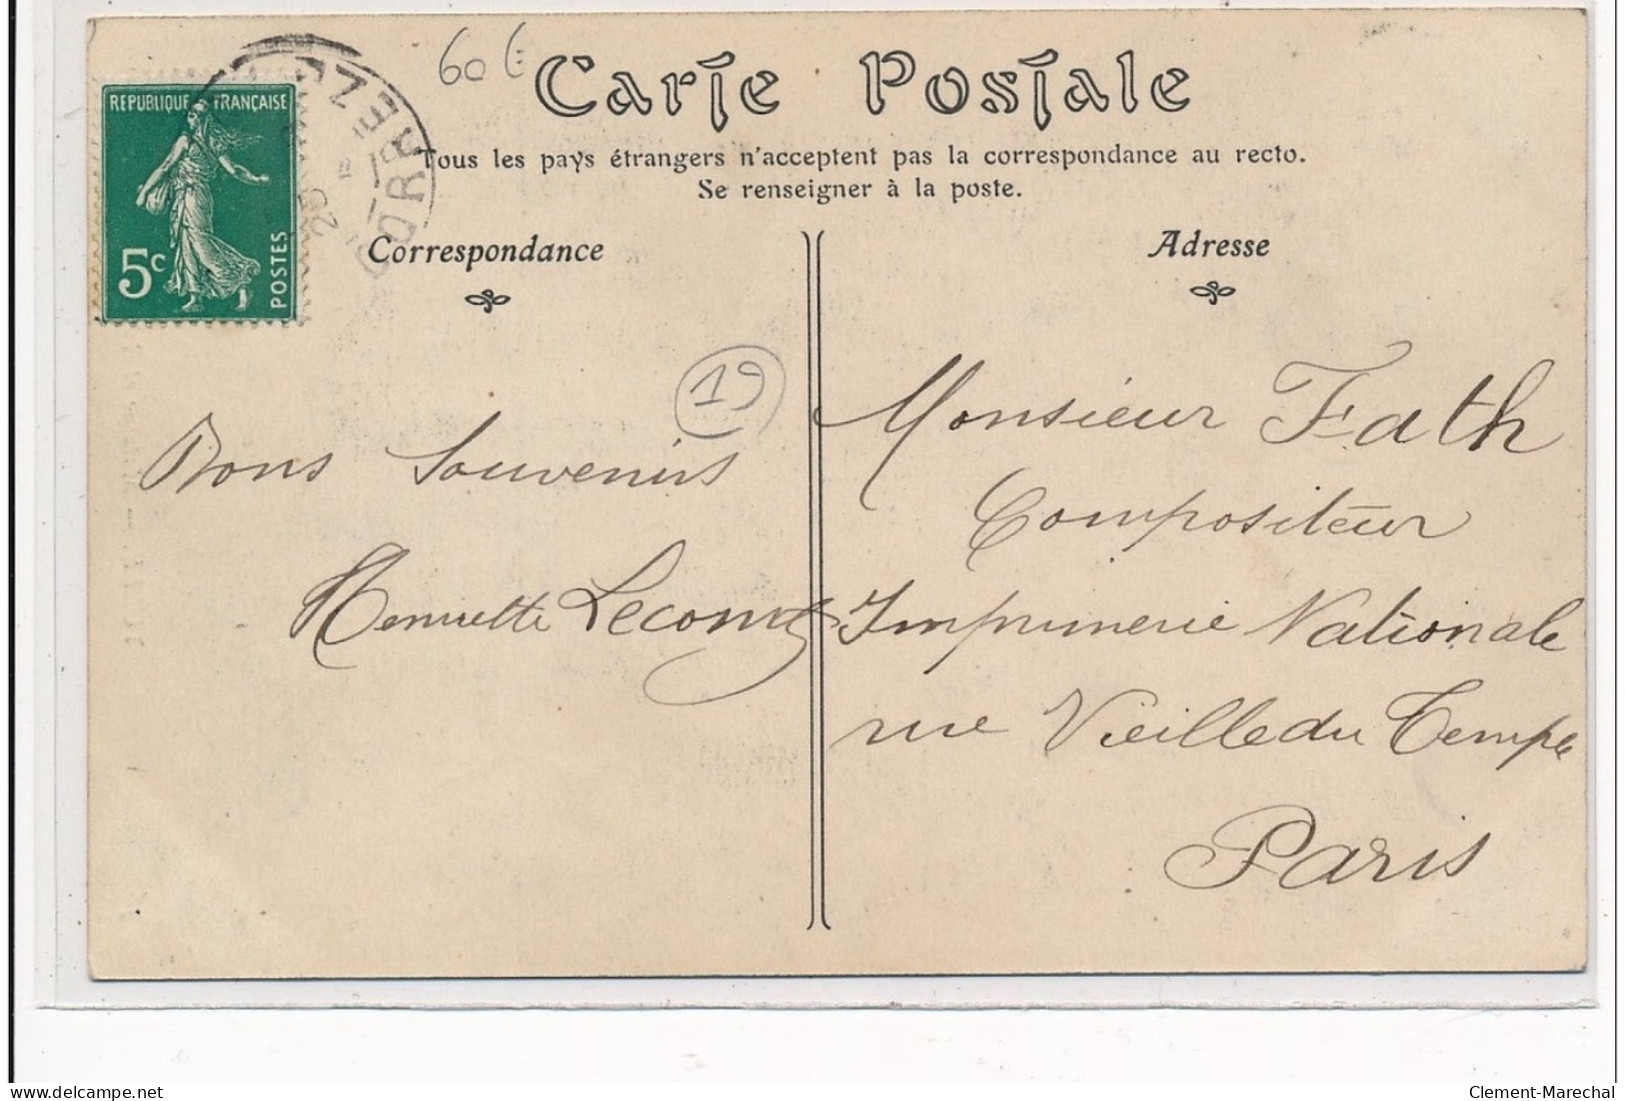 60 €
Carte Postale
Tous les pays étrangers n'acceptent pas la correspondance au recto.
Se renseigner à la poste.
REPUBLIQUE FRANÇAISE
5c
POSTES
CORRÈZE
25
Correspondance
Adresse
19
Bons Souvenirs
Henriette Lecomte
Monsieur Fath
Compositeur
Imprimerie Nationale
rue Vieille du Temple
Paris
Delcampe.net
Clement-Marechal